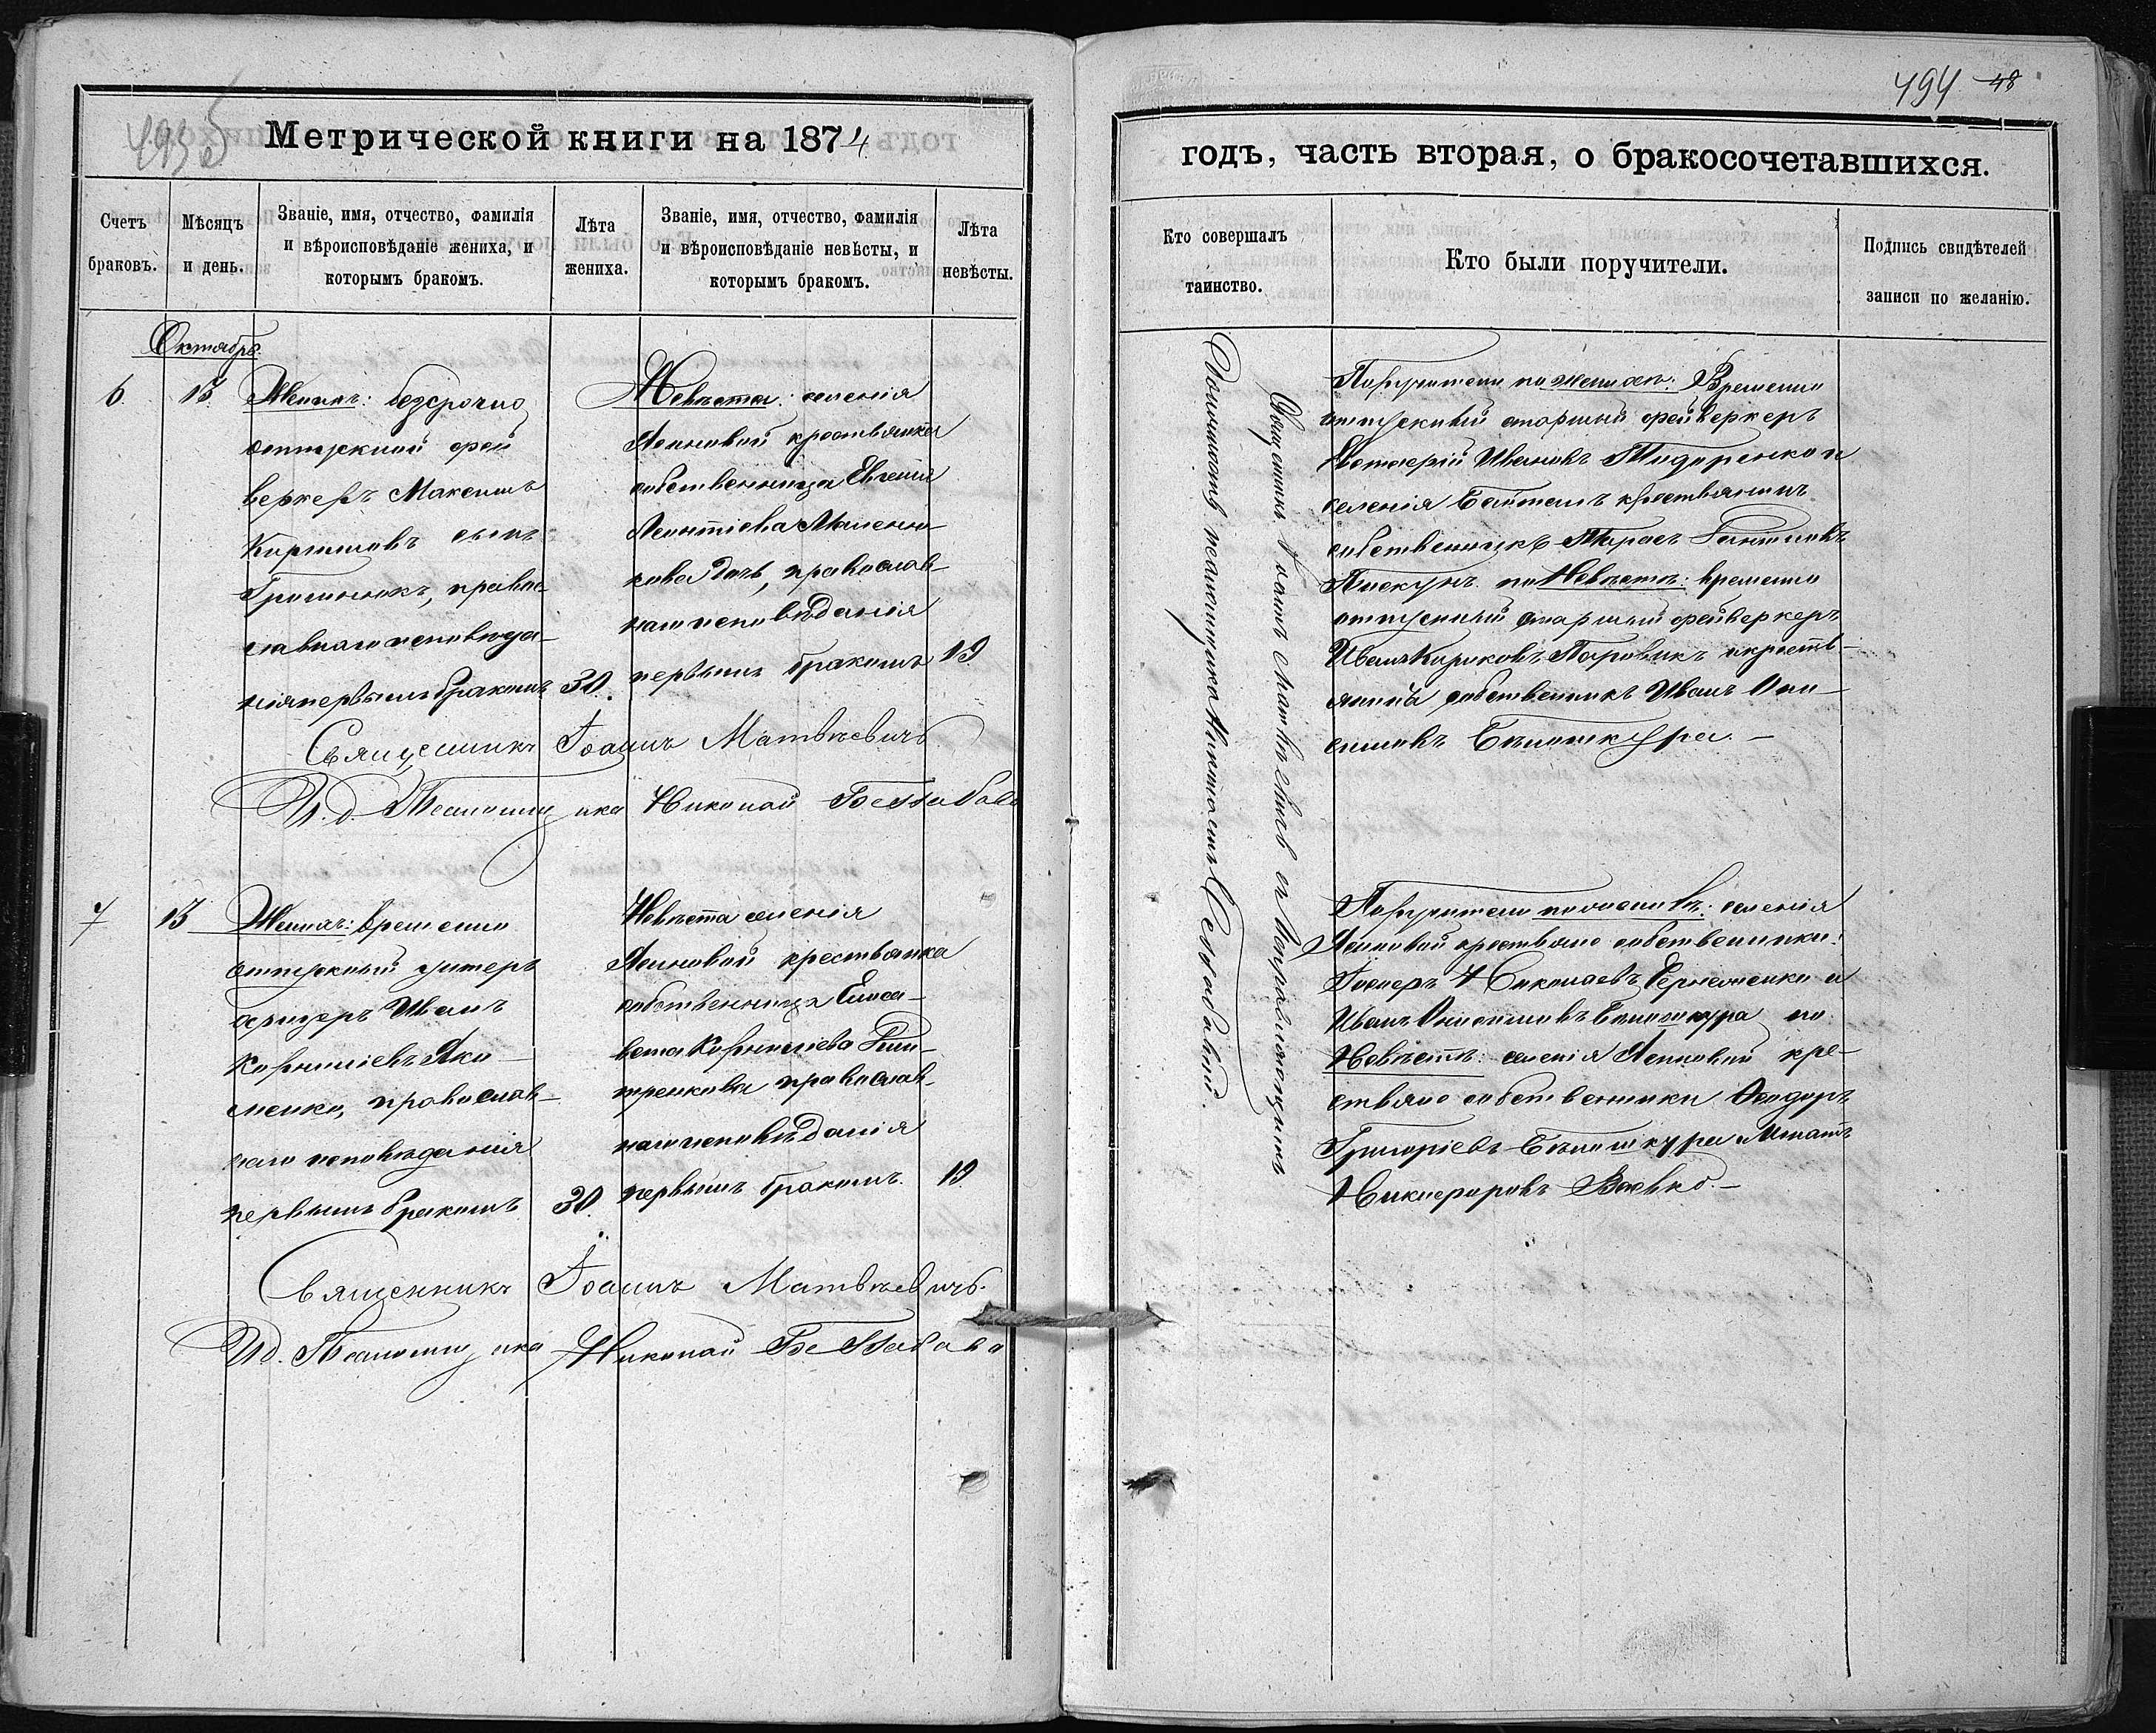 493 об
Метрической книги на 1874
Счетъ браковъ.
Мѣсяцъ и день.
Званіе, имя, отчество, фамилія
и вѣроисповѣданіе жениха, и
которымъ бракомъ.
Лѣта
жениха.
Званіе, имя, отчество, фамилія
и вѣроисповѣданіе невѣсты, и
которымъ бракомъ.
Лѣта
невѣсты.
Октябрь.
6. 13.
Женихъ: безсрочно
отпускной фей
веркеръ Максимъ
Кириловъ сынъ
правос-
лавнаго исповѣда-
нія первымъ бракомъ 30.
Невѣста: селенія
Ясиновой крестьянка
собственница Евгенія
Леонтіева
кова дочь, православ-
наго исповѣданія
первымъ бракомъ 19
Священникъ Іоаннъ Матвѣевичъ
И. д. Псаломщика Николай
7 13
Женихъ: временно
отпускной унтеръ
офицеръ Иванъ
Корниліевъ Яко-
менко, православ-
наго исповѣданія
первымъ бракомъ 30.
Невѣста селенія
Ясиновой крестьянка
собственница Елиса-
вета Корниліева
тренкова православ-
наго исповѣданія
первымъ бракомъ. 19.
Священникъ Іоаннъ Матвѣевичъ.
И д. Псаломщика Николай
494 48
годъ, часть вторая, о бракосочетавшихся.
Кто совершалъ
таинство.
Кто были поручители.
Подпись свидѣтелей
записи по желанію.
Священникъ Іоаннъ Матвѣевичъ съ исправляющимъ
должность псаломщика Николаемъ
Поручители по женихѣ: Временно
отпускной старшій фейверкеръ
Ивановъ Тидоренко и
селенія крестьянинъ
собственникъ Тарасъ
Пискунъ. по Невѣстѣ: временно
отпускной старшій фейверкеръ
Иванъ Кириковъ Паровикъ и кресть-
янинъ собственникъ Иванъ Они-
симовъ Бѣлошкура. —
Поручители по женихѣ: селенія
Ясиновой крестьяне собственники:
Николаевъ и
Иванъ Онисимовъ Бѣлошкура по
Невѣстѣ: селенія Ясиновой кре-
стьяне собственники Ѳеодоръ
Григоріевъ Бѣлошкура
Никифоровъ —